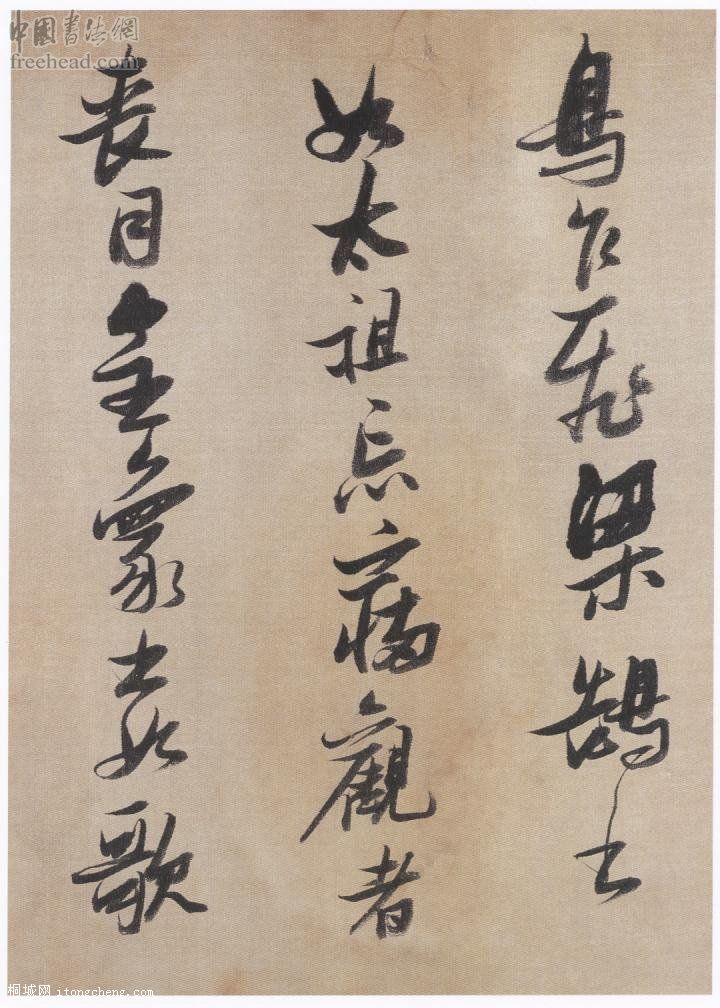 中國書法網
freehead.com
鳥乍飛梁鵠書
如太祖忘寢觀者
喪目皇象書如歌
桐城网 itongcheng.com